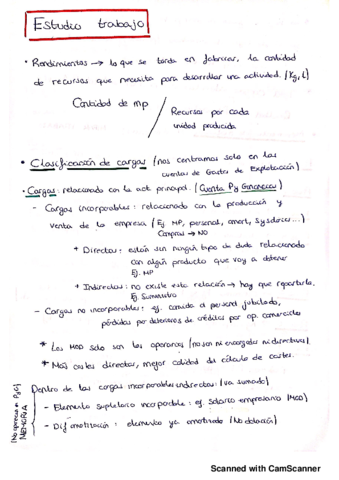 Estudio trabajo
• Rendimientos → lo que se tarda en fabricar, la cantidad
de recursos que necesita para desarrollar una actividad. (Kg, L)
Cantidad de mp / Recursos por cada
unidad producida
• Clasificación de cargas (nos centramos solo en las
cuentas de Gastos de Explotación)
• Cargas: relacionado con la act. principal. (Cuenta P y Ganancias)
- Cargas incorporables: relacionado con la producción y
venta de la empresa (Ej MP, personal, amort, Sys...)
Compras → NO
* Directas: están sin ningún tipo de duda relacionado
con algún producto que voy a obtener
Ej. MP
* Indirectas: no existe esta relación → hay que repartirla.
Ej Suministro
- Cargas no incorporables: ej. comida al personal jubilado,
pérdidas por deterioros de créditos por op. comerciales
* Los MOD solo son los operarios (no son ni encargados ni directivos)
* Más costes directos, mejor calidad del cálculo de costes.
(No aparece en PyG)
MEMORIA
Dentro de las cargas incorporables indirectas: (va sumado)
- Elemento supletorio incorporable: ej. salario empresario (MOD)
- Dif amortización: elemento ya amortizado (No dotación)
Scanned with CamScanner